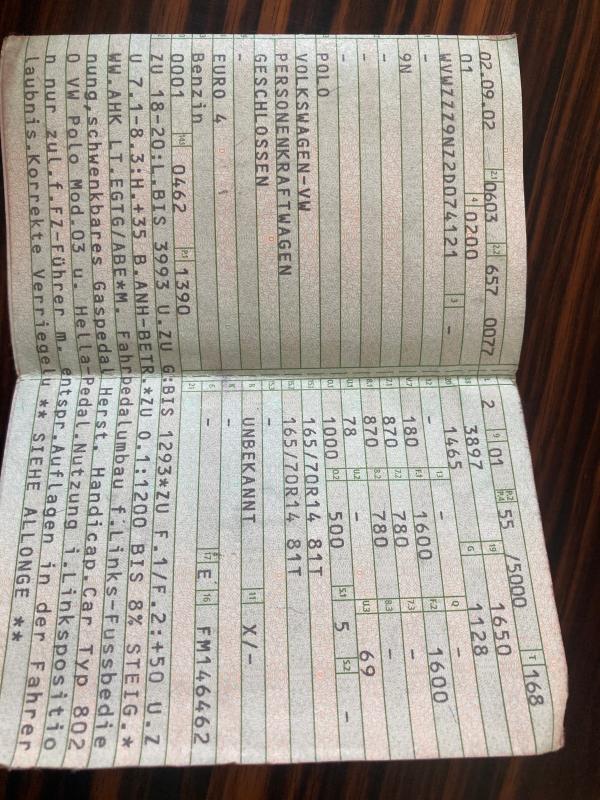 02.09.02 2.1 0603 2.2 657 0077
01 4 0200
WVWZZZ9NZ2D074121 3 -
-
9N
-
-
-
POLO
VOLKSWAGEN-VW
PERSONENKRAFTWAGEN
GESCHLOSSEN
-
EURO 4
Benzin
0001 14.1 0462 P.1 1390
2 9 01 P.2 P.4 55 /5000 T 168
18 3897 19 1650
20 1465 G 1128
12 - 13 - Q -
V.7 180 F.1 1600 F.2 1600
7.1 870 7.2 780 7.3 -
8.1 870 8.2 780 8.3 -
U.1 78 U.2 - U.3 69
O.1 1000 O.2 500 S.1 5 S.2 -
15.1 165/70R14 81T
15.2 165/70R14 81T
15.3 -
R UNBEKANNT 11 X/-
K -
6 - 17 E 16 FM146462
21
ZU 18-20:L.BIS 3993 U.ZU G:BIS 1293*ZU F.1/F.2:+50 U.Z
U 7.1-8.3:H.+35 B.ANH-BETR.*ZU O.1:1200 BIS 8% STEIG.*
WW.AHK LT.EGTG/ABE*M. Fahrpedalumbau f.Links-Fussbedie
nung,schwenkbares Gaspedal Herst. Handicap.Car Typ 802
0 VW Polo Mod.03 u. Hella-Pedal.Nutzung i.Linkspositio
n nur zul.f.FZ-Führer m. entspr.Auflagen in der Fahrer
laubnis.Korrekte Verriegelu ** SIEHE ALLONGE **